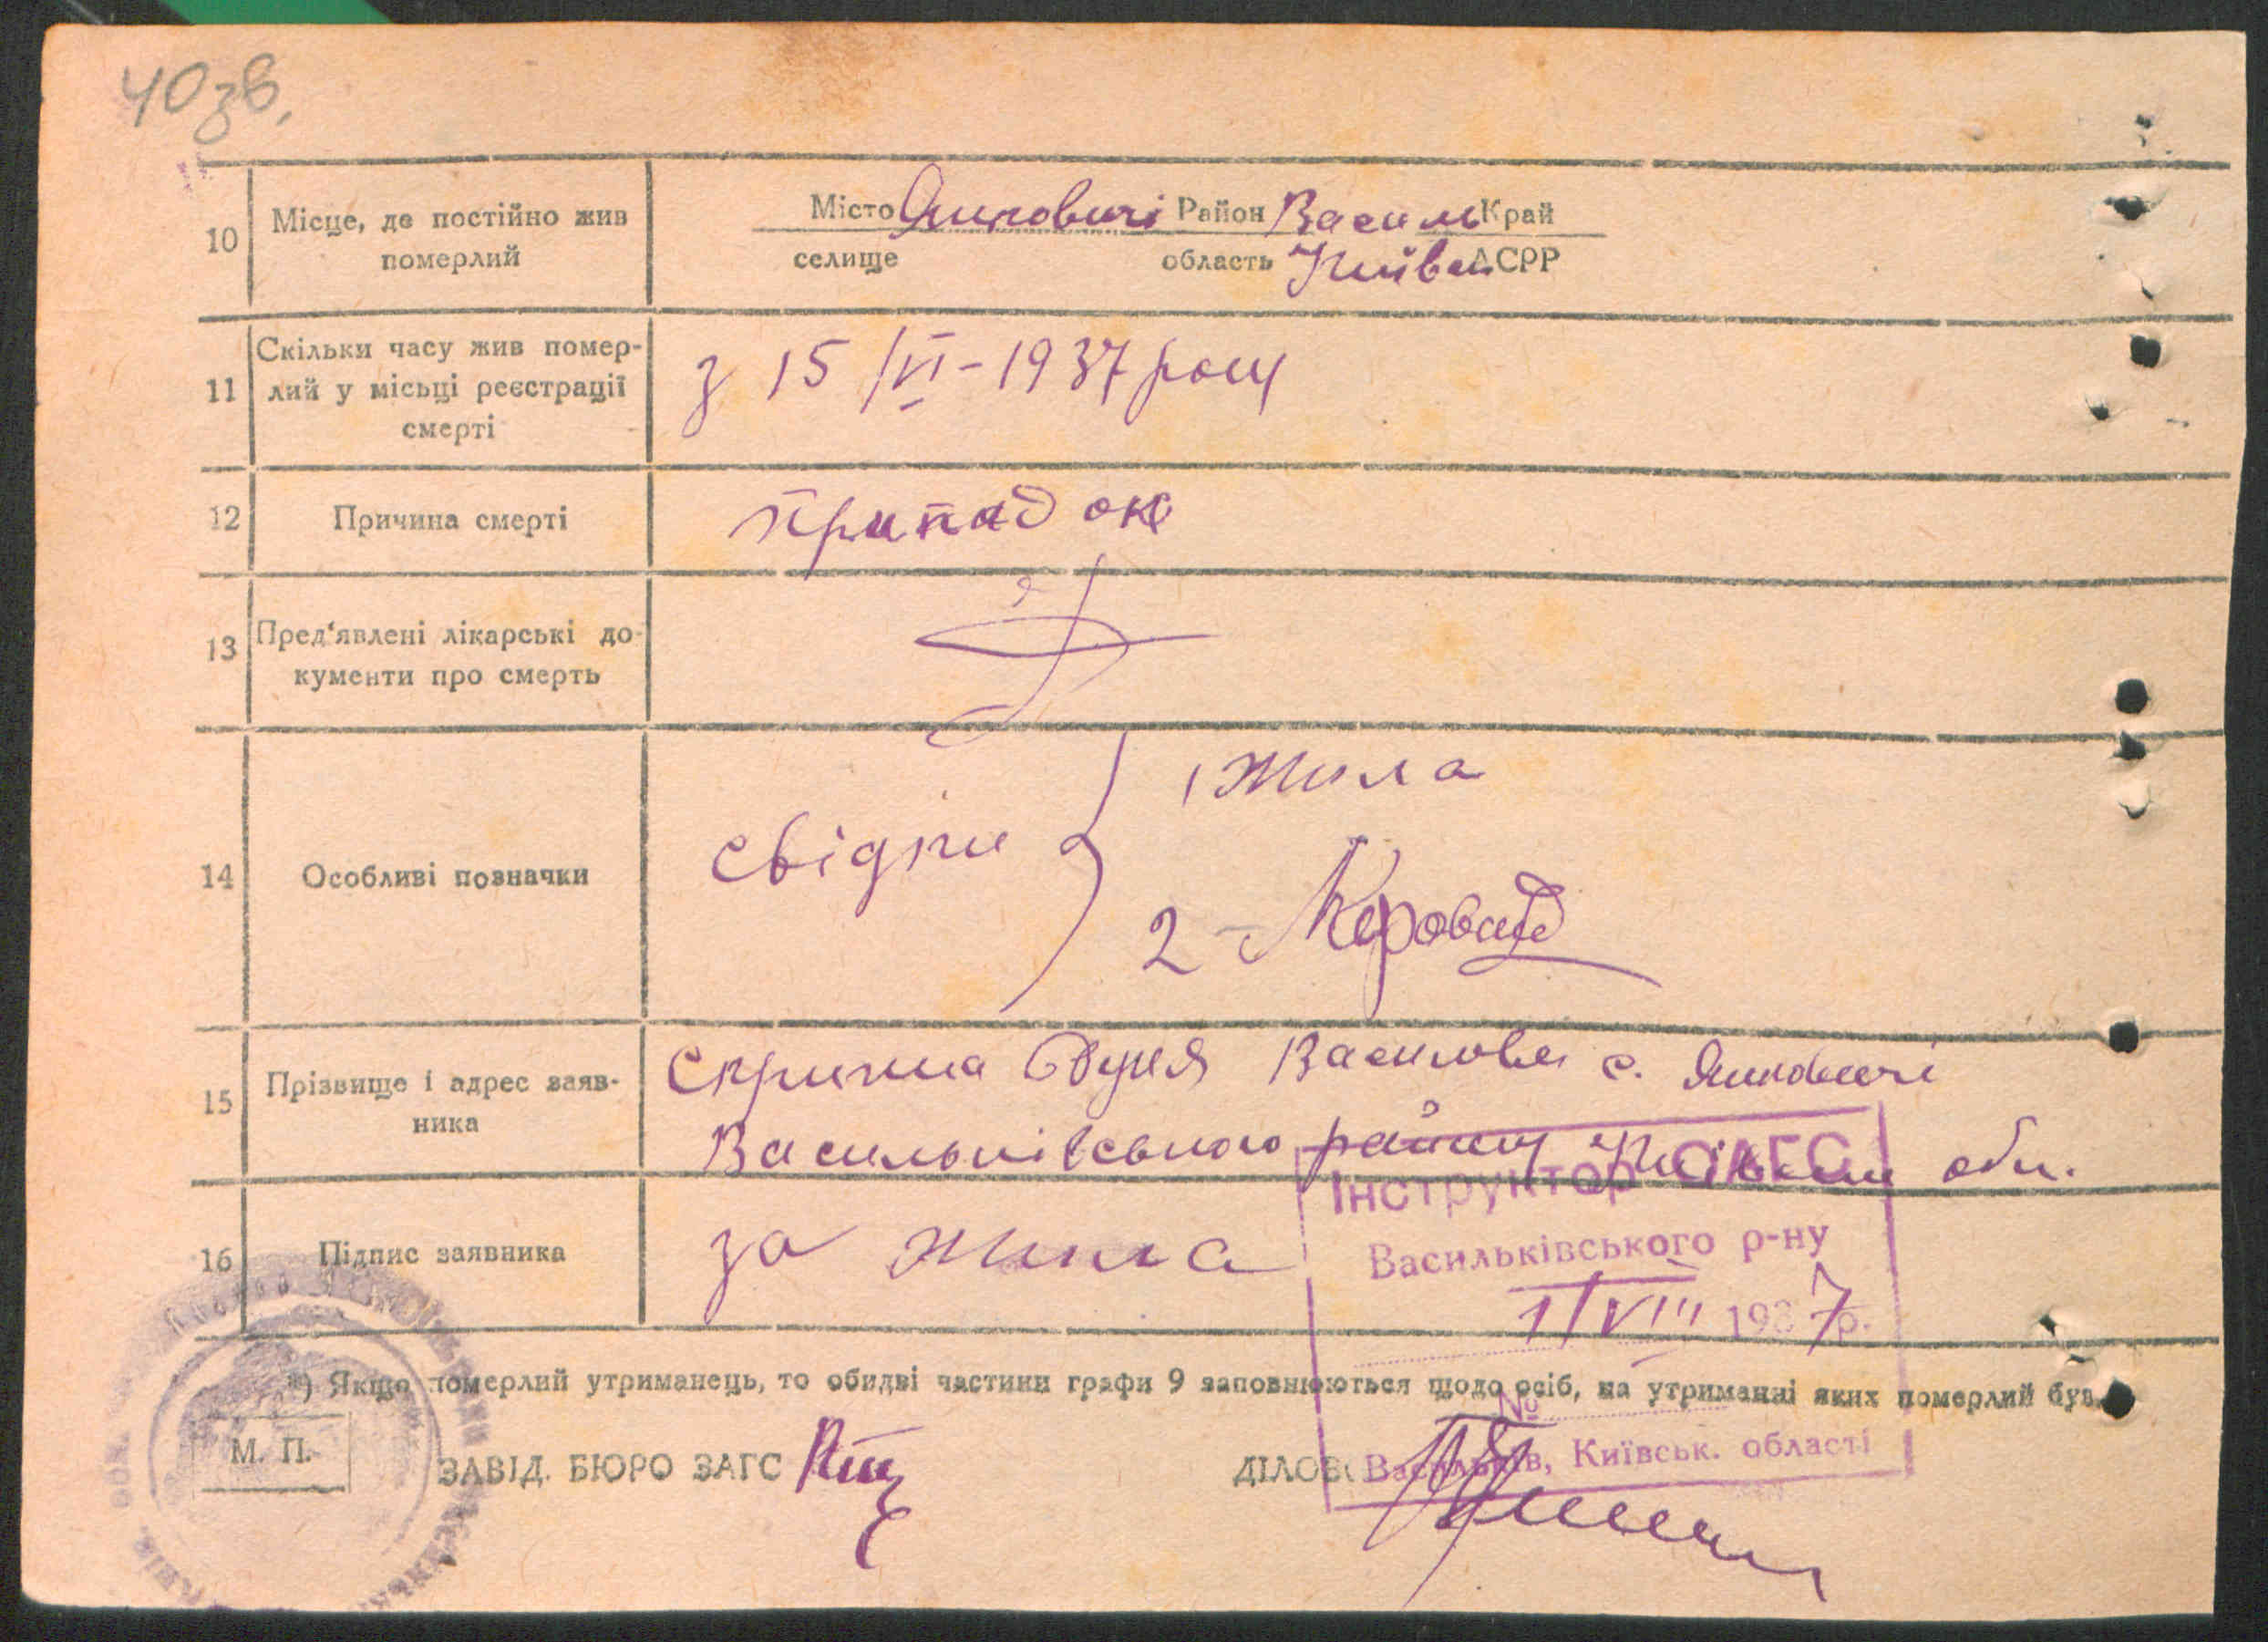 40зв.
10 Місце, де постійно жив померлий
Місто Яцковичі Район Васильк Край
селище область Київськ АСРР
11 Скільки часу жив помер-
лий у місьці реєстрації
смерті
з 15/VI-1937 року
12 Причина смерті припадок
13 Пред'явлені лікарські до-
кументи про смерть
14 Особливі позначки
свідки
1 Жила
2
15 Прізвище і адрес заяв-
ника
Василівн с. Яцковичі
Васильківського району Київськ обл.
16 Підпис заявника за Жила
Інструктор ОАГС
Васильківського р-ну
1/VIII 1937р.
№
Васильків, Київськ. області
*) Якщо померлий утриманець, то обидві частини графи 9 заповнюються щодо осіб, на утриманні яких померлий був.
М. П.
ЗАВІД. БЮРО ЗАГС
ДІЛОВ